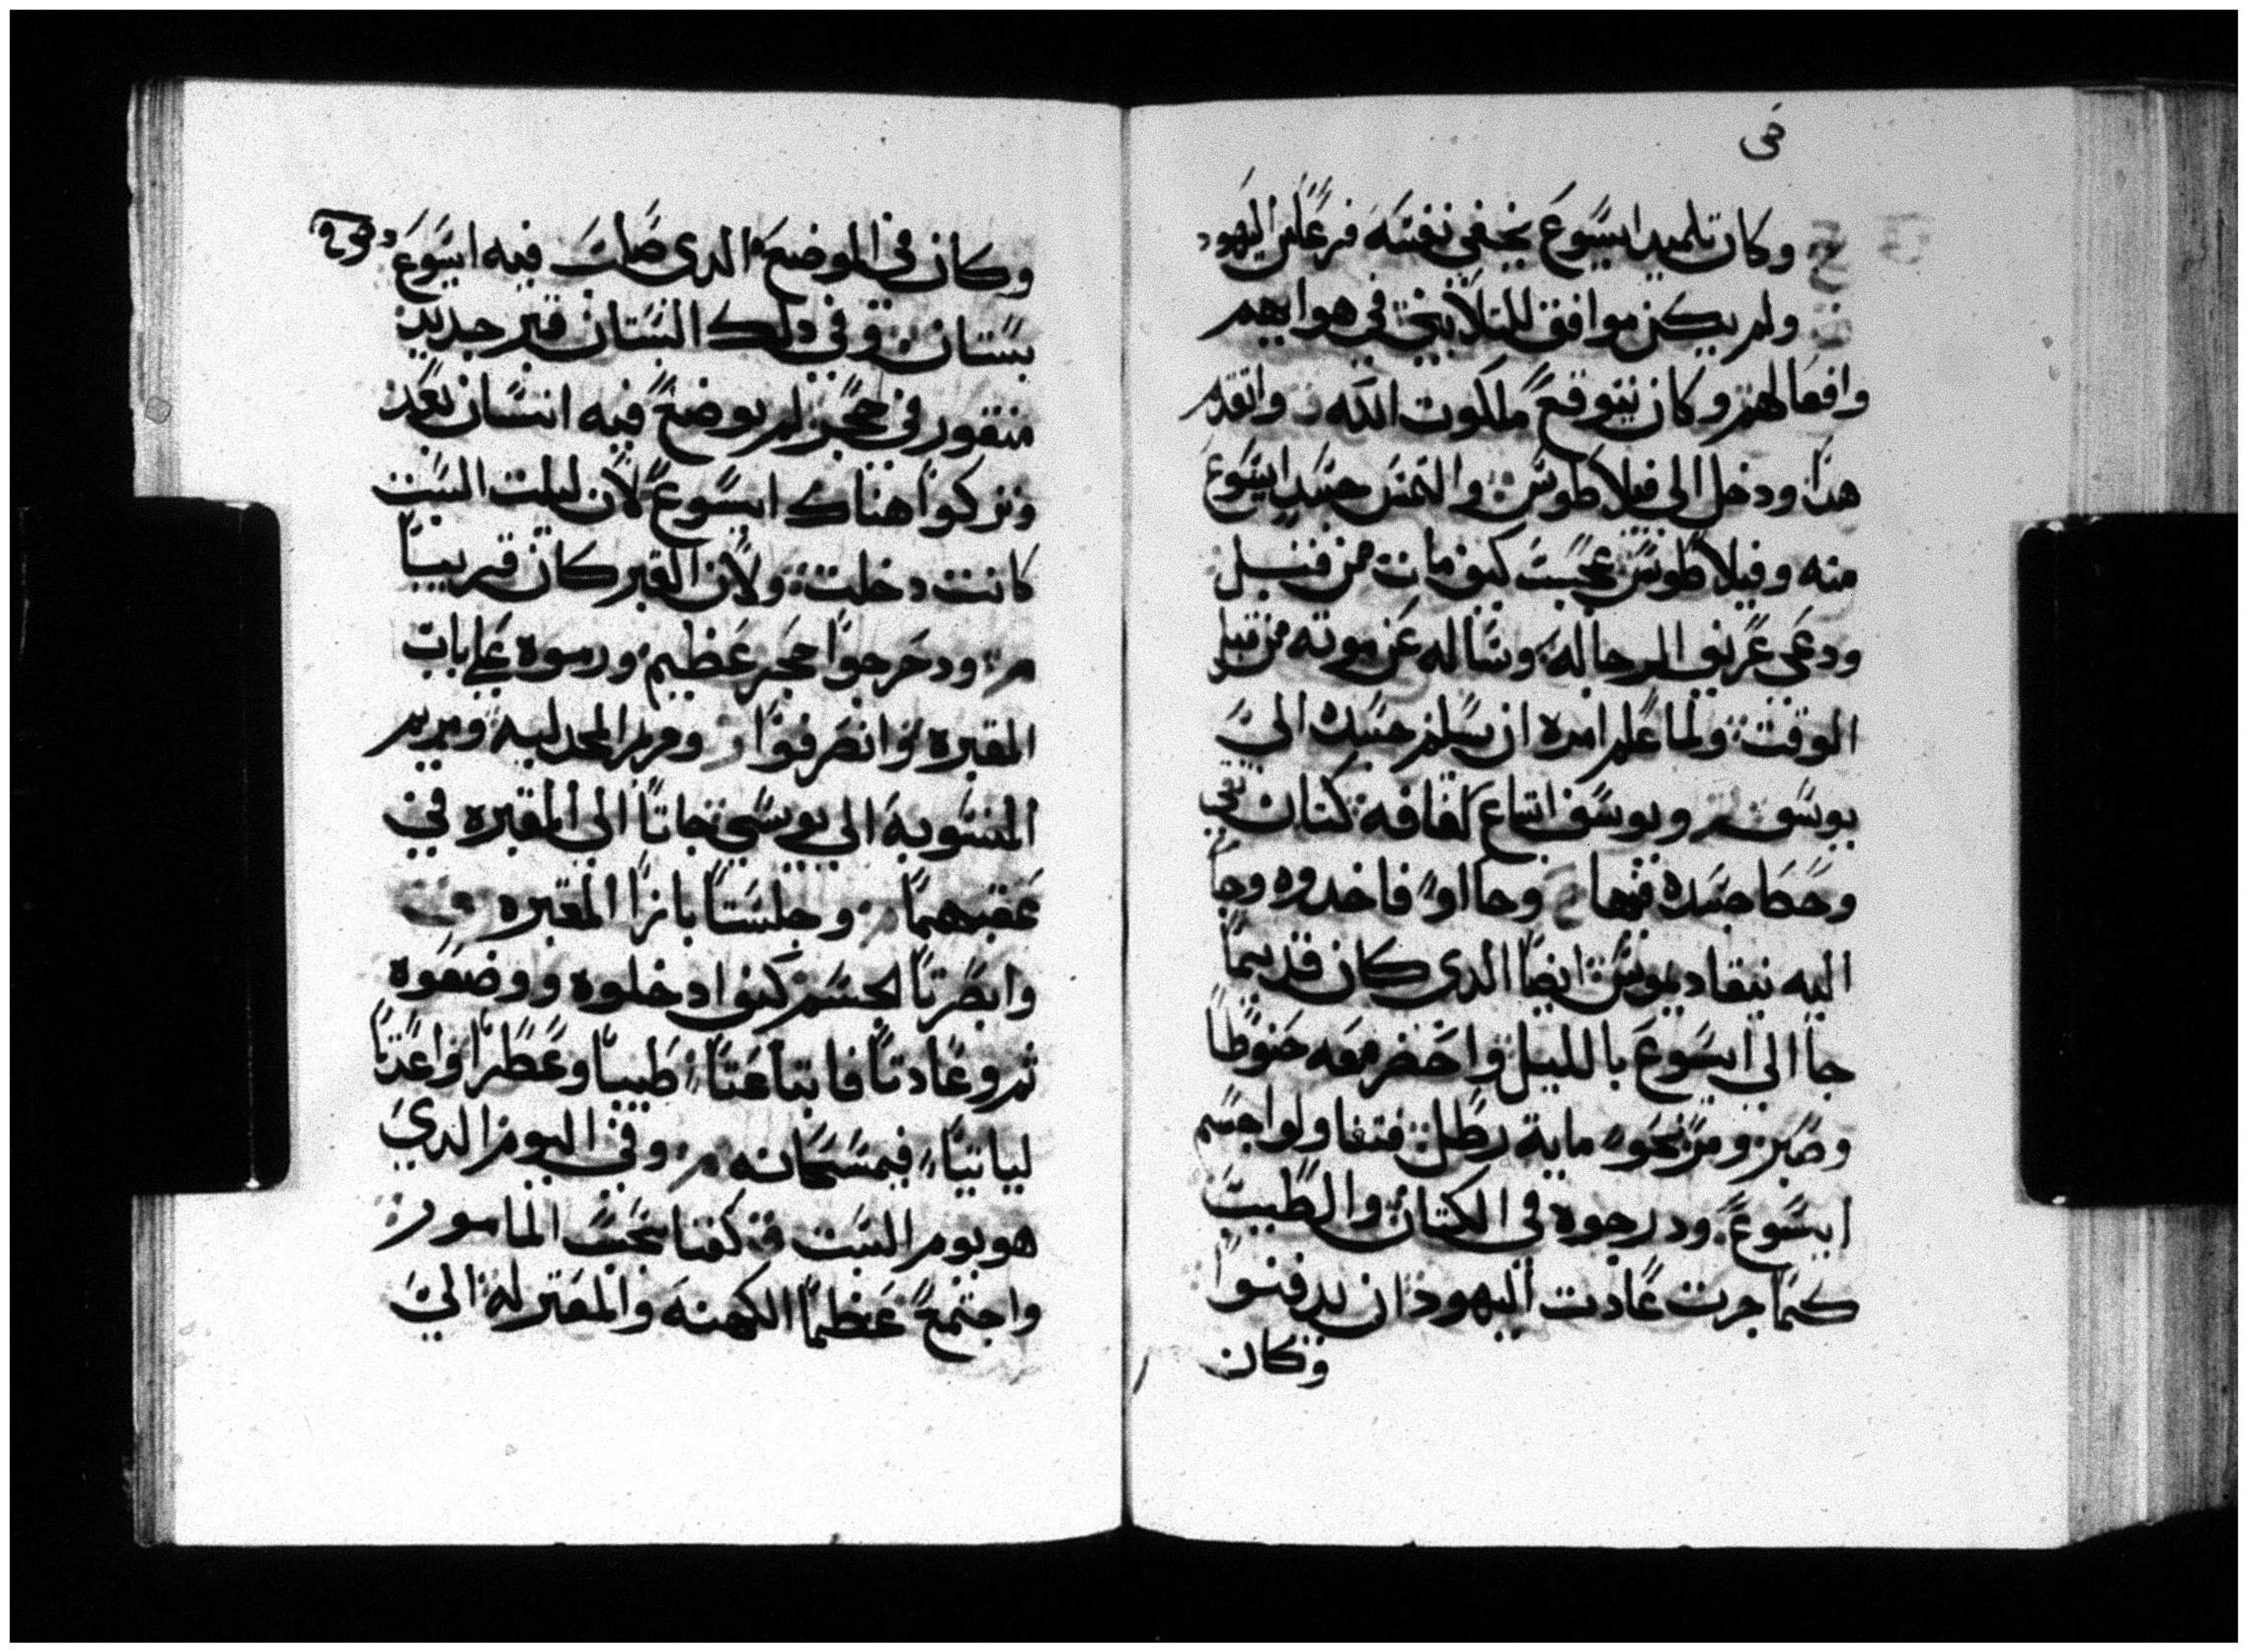 في
وكان تلميد ايسوع يخفي نفسه فزعا من اليهود
ولم يكن موافق للتلابتين في هوايهم
وافعالهم وكان يتوقع ملكوت الله وانقدم
هدا ودخل الى فيلاطوس والتمس جسد ايسوع
منه وفيلاطوس عجب كيف مات من قبل
ودعى عريف الرجاله وساله عن موته من قبل
الوقت ولما علم امره ان يسلم جسده الي
يوسف ويوسف ابتاع لفافه كتان نقي
وحطا جسده فيها وجااو فاخدوه وجا
اليه نيقاديموس ايضا الدي كان قديما
جا الي ايسوع بالليل واحضر معه حنوطا
وصبر ومر نحو ماية رطل فتناولوا جسم
ايسوع ودرجوه في الكتان والطيب
كما جرت عادت اليهود ان يدفنوا
وكان
وكان في الموضع الدى صلب فيه ايسوع
بستان وفي دلك البستان قبر جديد
منقور في حجر لم يوضع فيه انسان بعد
وتركوا هناك ايسوع لان ليلت السبت
كانت دخلت ولان القبر كان قريبا
ودحرجوا حجر عظيم ورموه علي باب
المقبره وانصرفوا ومريم المجدليه ومريم
المنسوبه الي يوسي جاتا الى المقبره في
عقبهما وجلستا بازا المقبره
وابصرتا الجسم كيف ادخلوه ووضعوه
ثم وعادتا فابتاعتا طيبا وعطرا واعدتا
لياتيا فيمسحانه وفي اليوم الدي
هو يوم السبت كفتا بحسب المامور
واجتمع عظما الكهنه والمعتزله الي